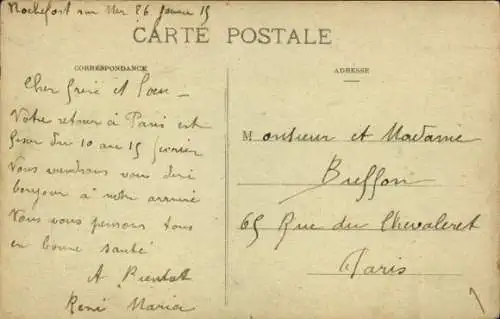 Rochefort sur Mer 26 Janvier 15
CARTE POSTALE
CORRESPONDANCE
ADRESSE
Cher frère et Soeur
Votre retour à Paris est
fixer du 10 au 15 février
Vous viendrons vous dire
bonjour à notre arrivée
Vous vous pensons tous
en bonne santé
A Bientot
René Maria
Monsieur et Madame
Buffon
65 Rue du Chevaleret
Paris